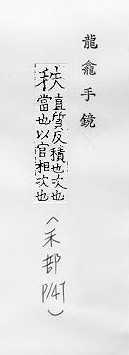 龍龕手鏡
秩直質反積也次也
當也以官相次也
(禾部P147)